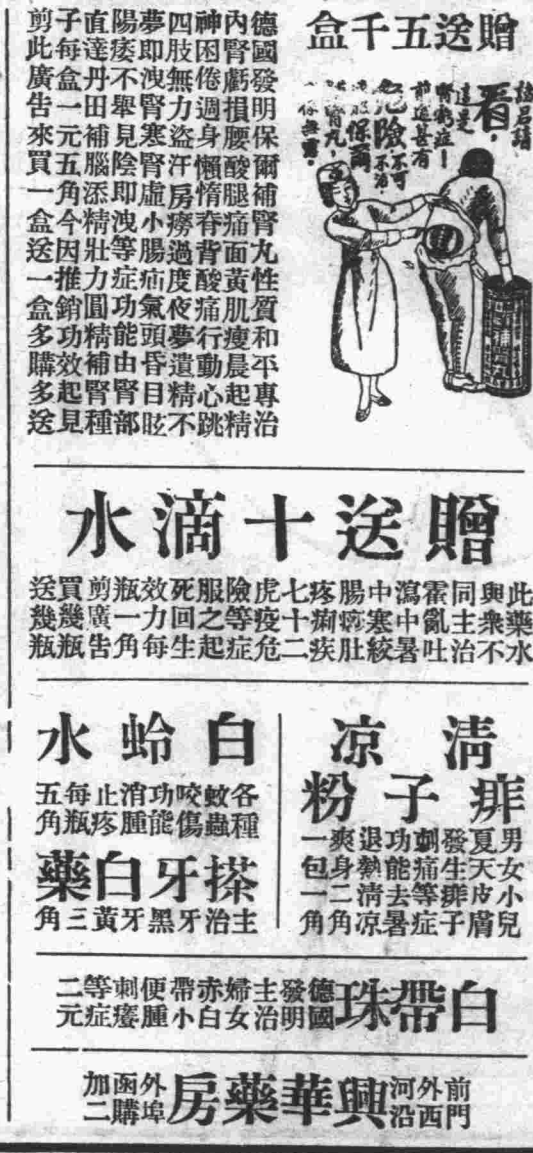 贈送五千盒
諸君請
看，
這是
腎虧症！
前途甚有
危險不可不治
速服保爾
補腎丸，
可保無虞。
德國發明保爾補腎丸性質和平專治
內腎虧損腰酸腿痛面黃肌瘦晨起精
神困倦週身懶惰脊背酸痛行動心跳
四肢無力盜汗房癆過度夜夢遺精不
夢即洩腎寒腎虛小腸疝氣頭昏目眩
陽痿不舉見陰即洩等症功能由腎部
直達丹田補腦添精壯力圓精補腎種
子每盒一元五角今因推銷功效起見
剪此廣告來買一盒送一盒多購多送
贈送十滴水
此藥水
與衆不
同主治
霍亂吐
瀉中暑
中寒絞
腸痧肚
疼痢疾
七十二
虎疫危
險等症
服之起
死回生
效力每
瓶一角
剪廣告
買幾瓶
送幾瓶
清凉
痱子粉
男女小兒
夏天皮膚
發生痱子
刺痛等症
功能去暑
退熱清凉
爽身二角
一包一角
白蛉水
各種
蚊蟲
咬傷
功能
消腫
止疼
每瓶
五角
搽牙白藥
主治
牙黑
牙黃
三角
白帶珠
德國
發明
主治
婦女
赤白
帶小
便腫
刺癢
等症
二元
前門
外西
河沿
興華藥房
外埠
函購
加二